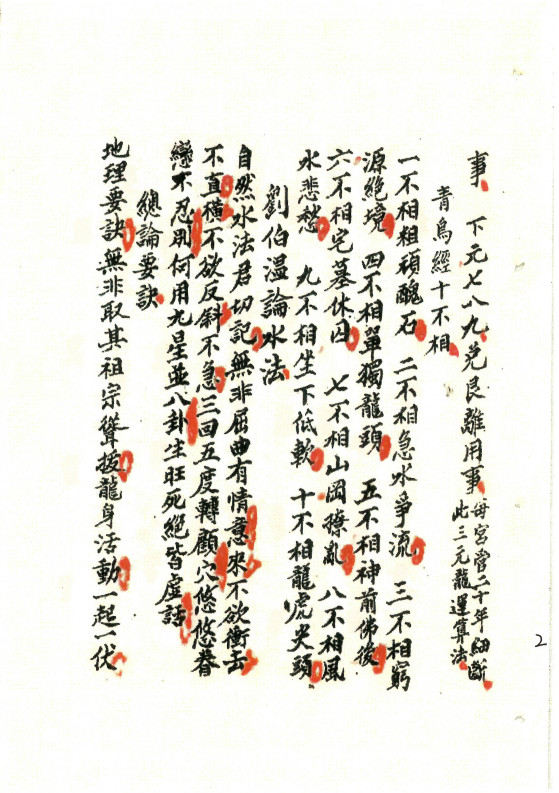 事 下元七八九兌艮離用事 每宮管二十年細斷
此三元龍運算法
青烏經十不相
一不相粗頑醜石 二不相急水爭流 三不相窮
源絕境 四不相單獨龍頭 五不相神前佛後
六不相宅墓休囚 七不相山岡撩亂 八不相風
水悲愁 九不相坐下低軟 十不相龍虎尖頭
劉伯溫論水法
自然水法君切記無非屈曲有情意來不欲衝去
不直橫不欲反斜不急三回五度轉顧穴悠悠眷
戀不忍用何用九星並八卦生旺死絕皆虛話
總論要訣
地理要訣無非取其祖宗聳拔龍身活動一起一伏
2